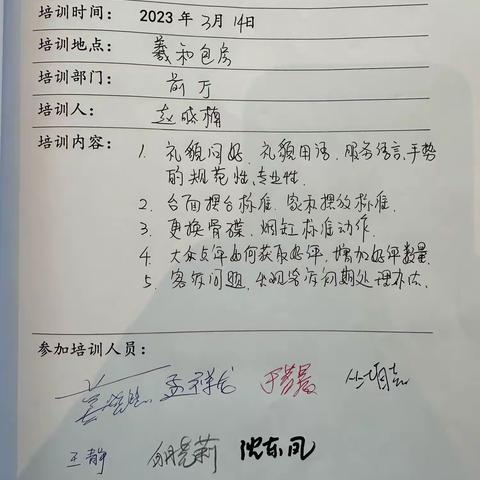 培训时间： 2023 年 3月 14日
培训地点： 羲和包房
培训部门： 前厅
培训人： 赵晓楠
培训内容： 1. 礼貌问好、礼貌用语、服务语言、手势
的规范性、专业性.
2. 台面摆台标准、家私摆放标准.
3. 更换骨碟、烟缸标准动作.
4. 大众点评如何获取好评、增加好评数量.
5. 客诉问题、出现客诉初期处理办法.
参加培训人员：
孟祥龙
王静 沈东凤